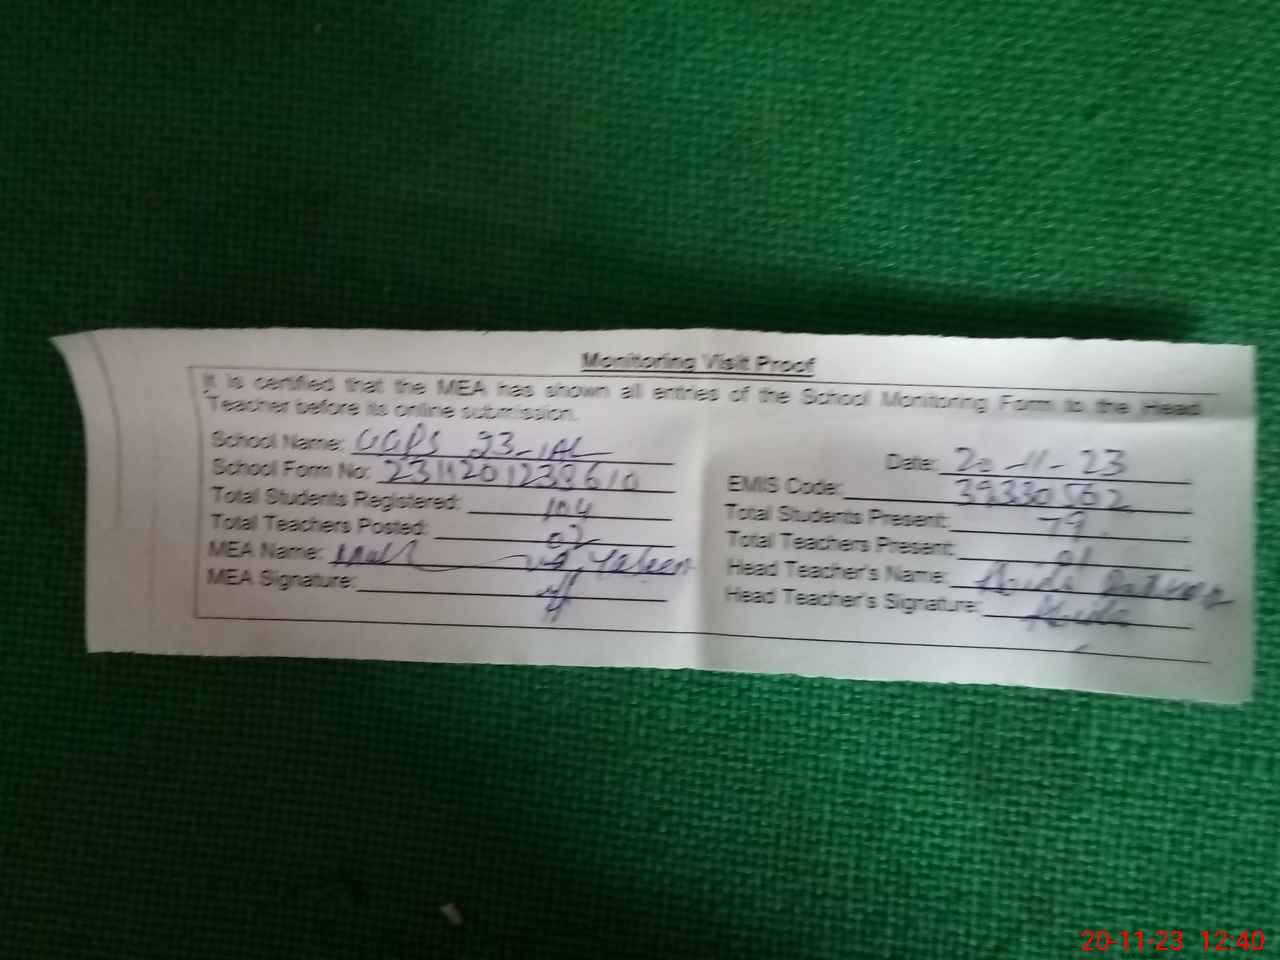 Monitoring Visit Proof
It is certified that the MEA has shown all entries of the School Monitoring Form to the Head
Teacher before its online submission.
School Name: GGPS 23-1AL
Date: 20-11-23
School Form No: 2311201238610
EMIS Code: 39330562
Total Students Registered: 104
Total Students Present: 79
Total Teachers Posted: 02
Total Teachers Present: 01
MEA Name: Yaseen
Head Teacher's Name:
MEA Signature:
Head Teacher's Signature:
20-11-23 12:40